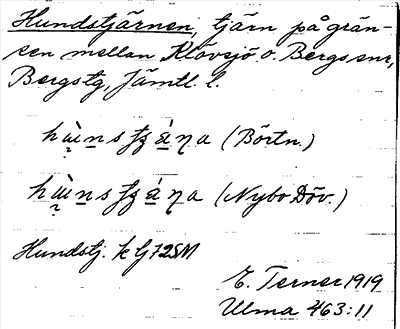 Hundstjärnen, tjärn på grän-
sen mellan Klövsjö o. Bergs snr,
Bergs tg, Jämtl. l.
(Börtn.)
(Nybo Döv.)
Hundstj. k Gj 72SM
E. Terner 1919
Ulma 463:11